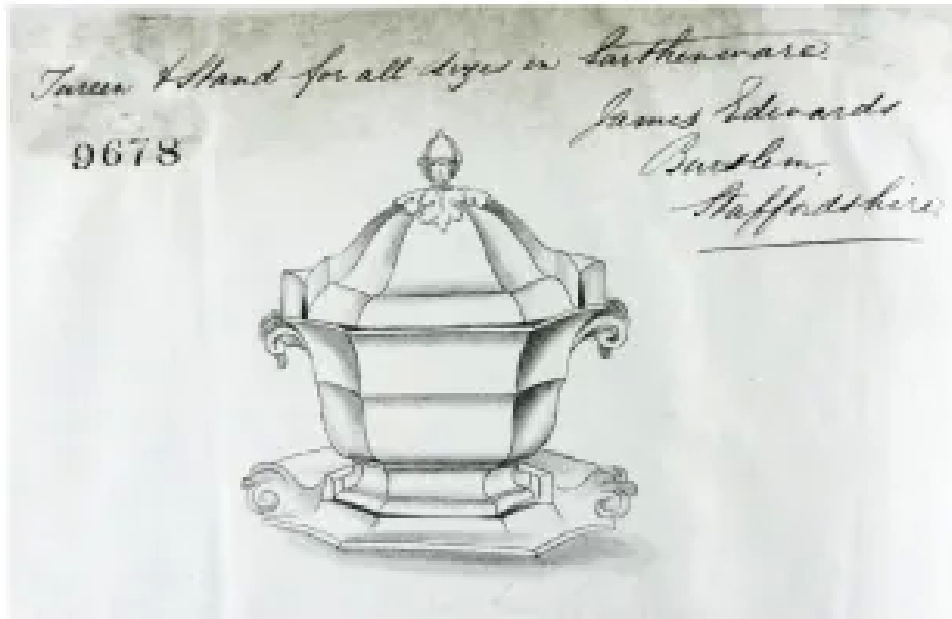 Tureen & Stand for all sizes in Earthenware.
James Edwards
Burslem,
Staffordshire.
9678